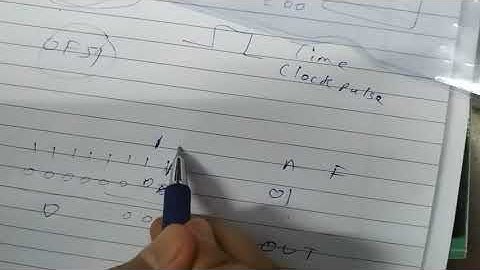 00
6F59
Time
Clock pulse
1
1 1 1 1 1 1 1 1
A F
0 0 0 0 0 0
01
D
0 0
OUT